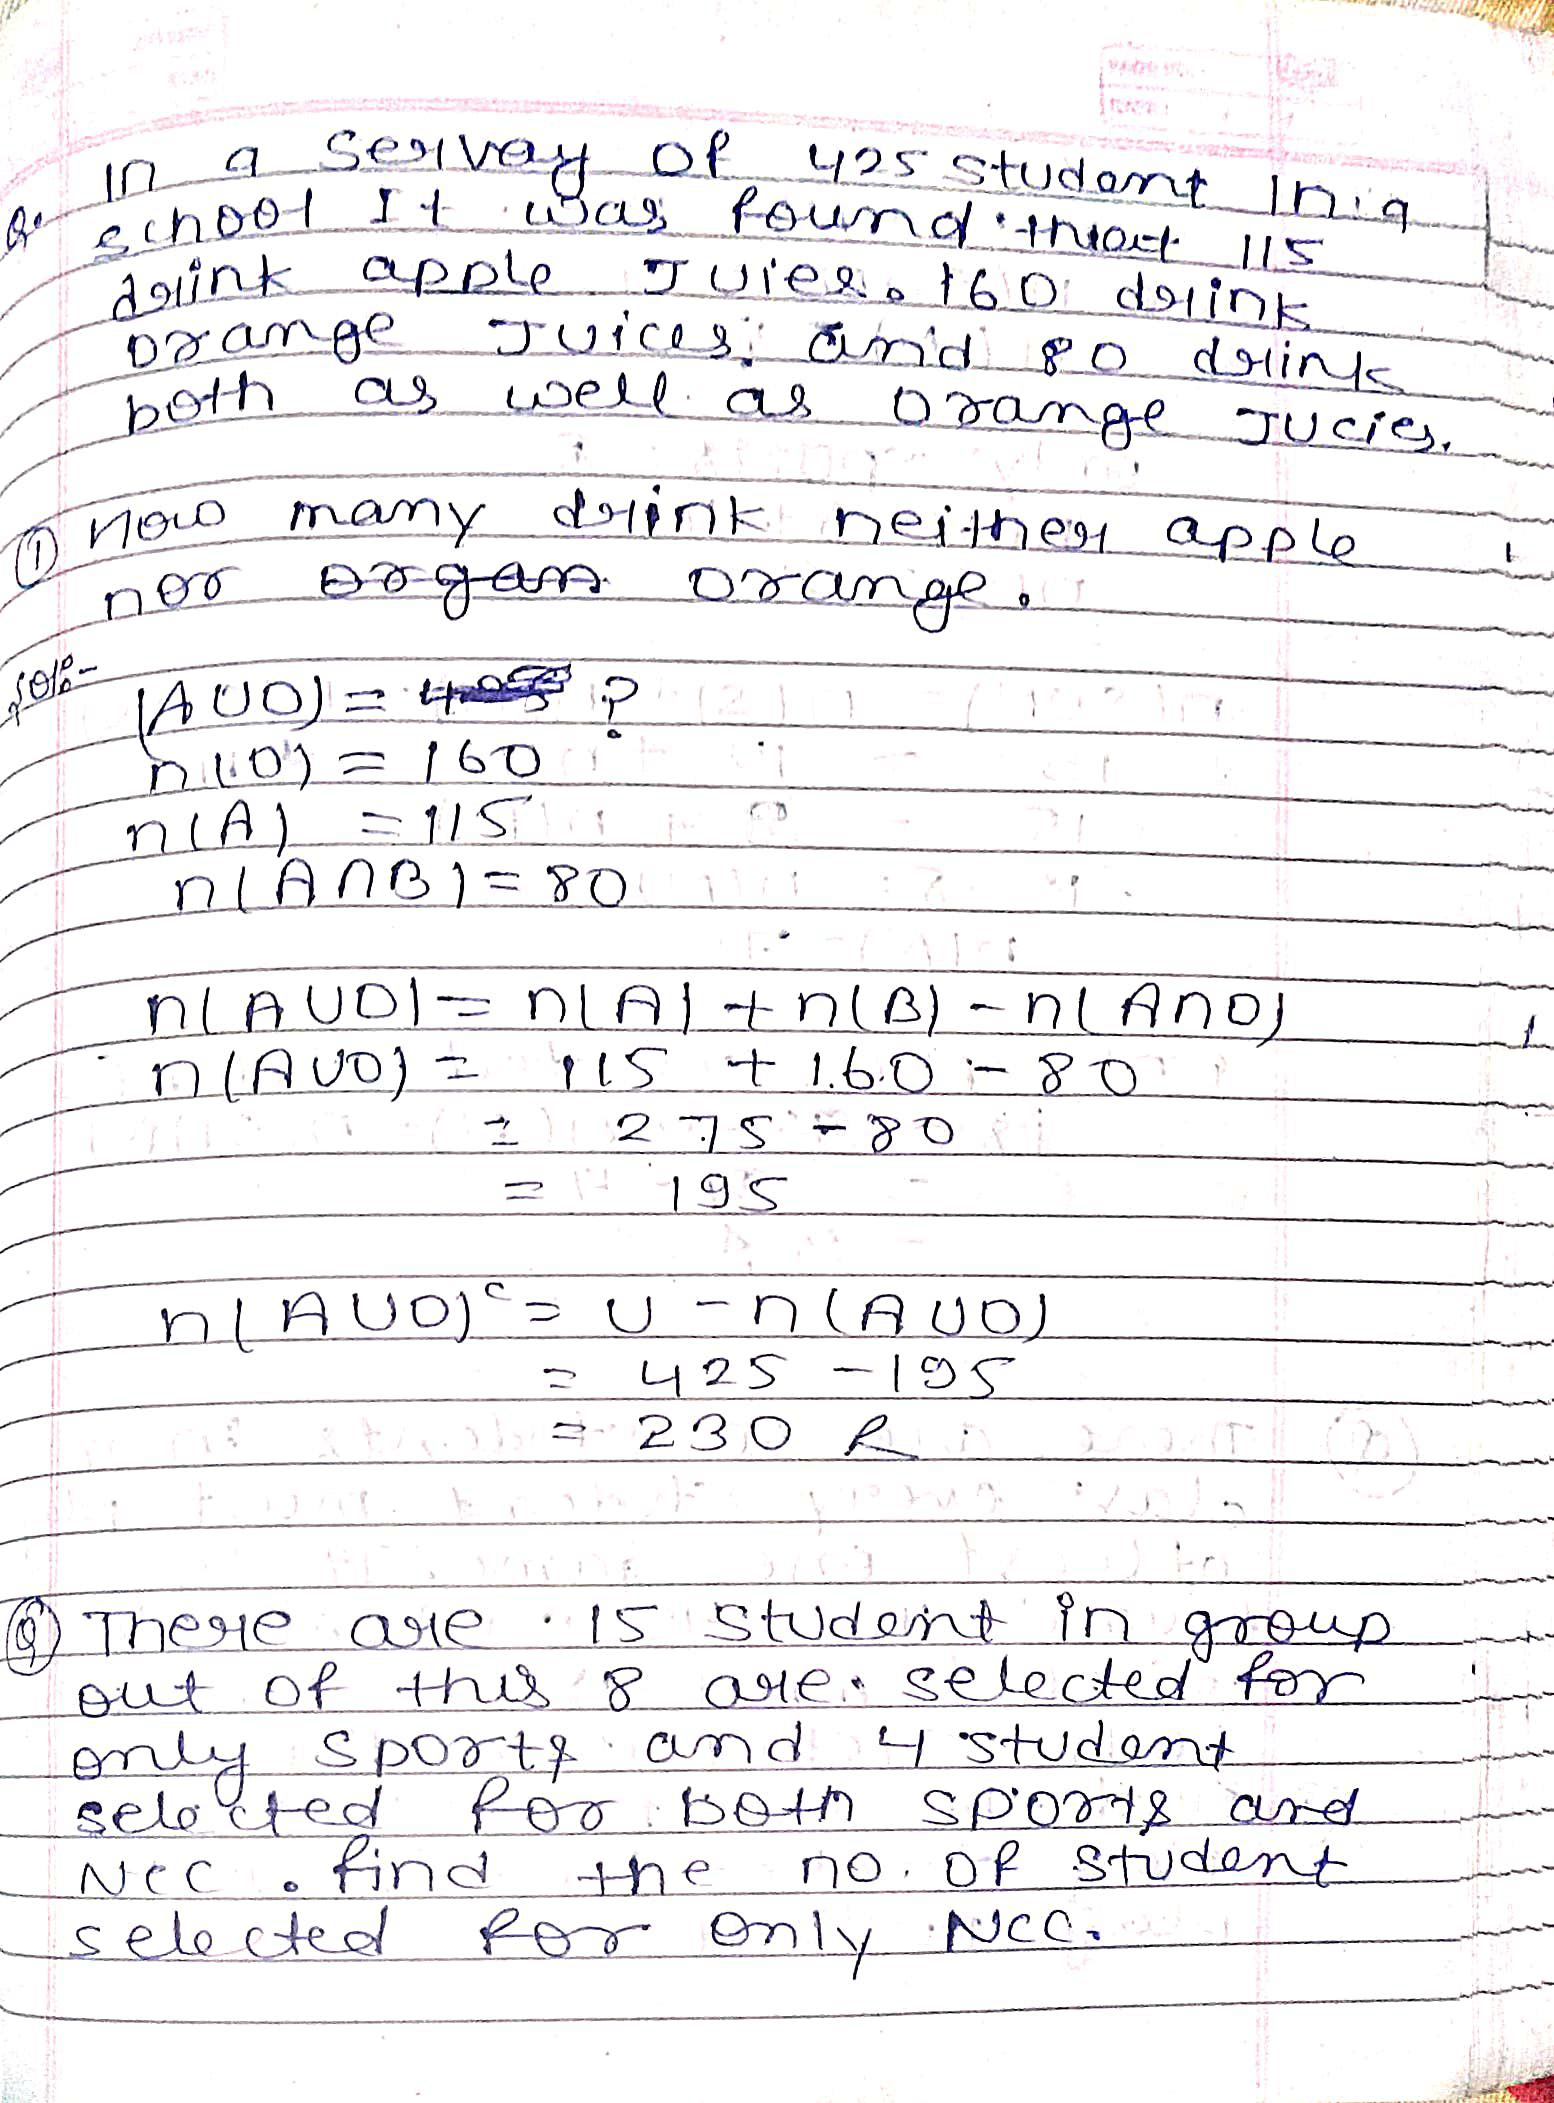 Q. In a servay of 425 student In a
school It was found that 115
drink apple Juies. 160 drink
orange Juices. and 80 drinks
both as well as orange Jucies.
① How many drink neither apple
nor organ orange.
Sol:-
(AUO) = ?
n(O) = 160
n(A) = 115
n(A∩B) = 80
n(AUO) = n(A) + n(B) - n(A∩O)
n(AUO) = 115 + 160 - 80
= 275 - 80
= 195
n(AUO)ᶜ = U - n(AUO)
= 425 - 195
= 230
Q There are 15 student in group
out of this 8 are selected for
only sports and 4 student
selected for both sports and
NCC. find the no. of student
selected for only NCC.